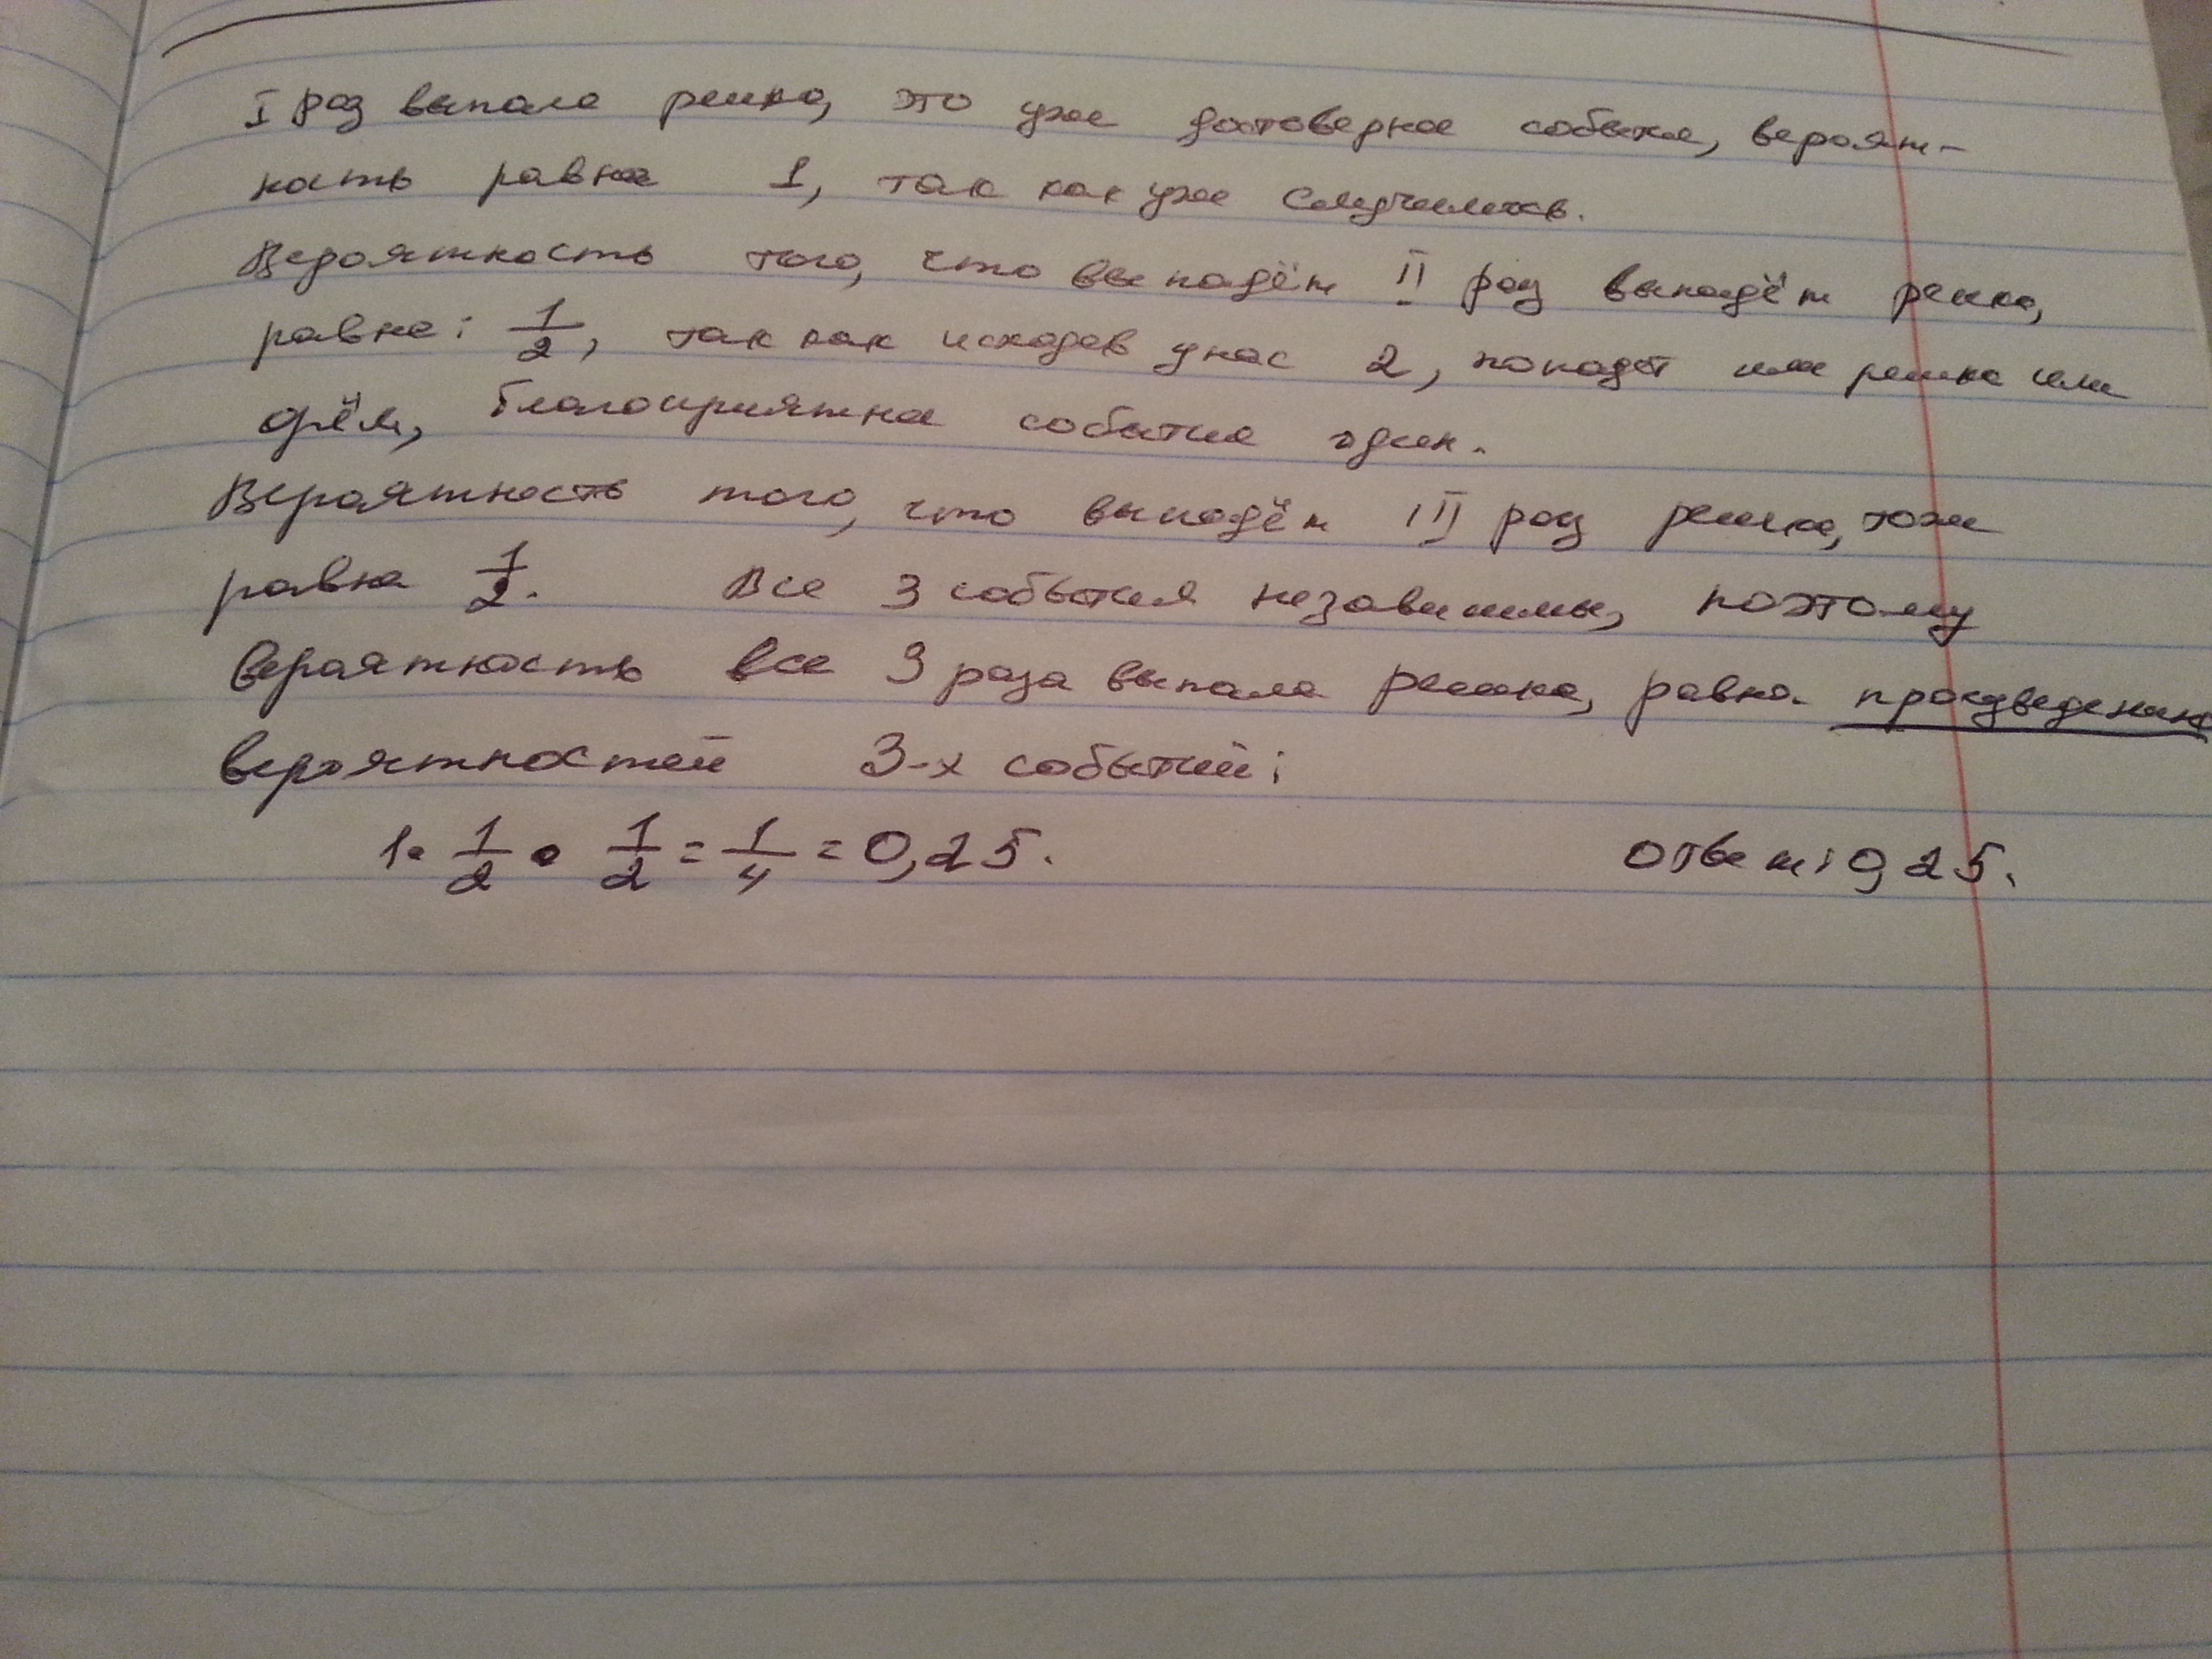 I раз выпала решка, это уже достоверное событие, вероят-
ность равна 1, так как уже случилось.
Вероятность того, что выпадёт II раз выпадёт решка,
равна: 1/2, так как исходов у нас 2, попадёт или решка или
орёл, благоприятное событие один.
Вероятность того, что выпадёт III раз решка, тоже
равна 1/2. Все 3 события независимы, поэтому
вероятность все 3 раза выпала решка, равна произведению
вероятностей 3-х событий:
1 · 1/2 · 1/2 = 1/4 = 0,25. Ответ: 0,25.